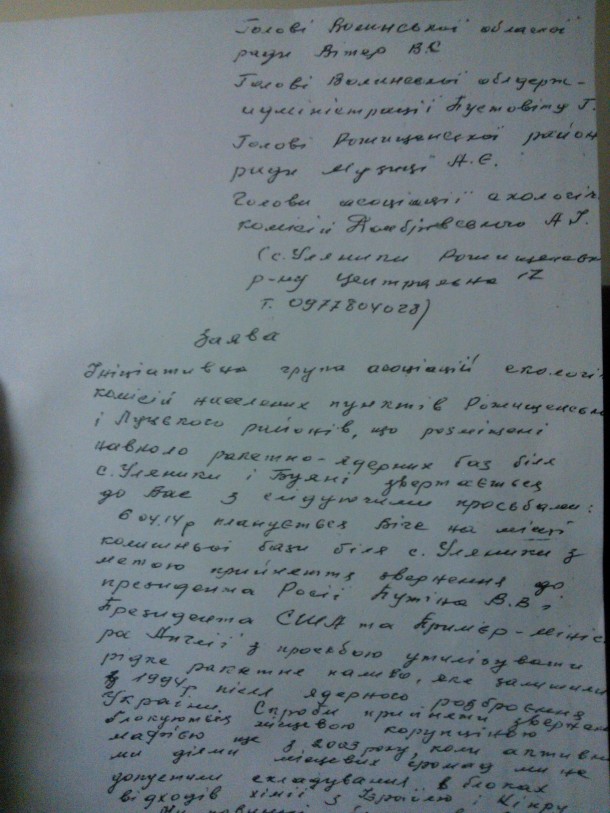 Голові Волинської обласної
ради Вітер В.С
Голові Волинської облдерж-
адміністрації Пустовіту Г.
Голові Рожищенської район
ради А.Є.
Голови асоціації екологіч.
комісій А.І.
(с. Уляники Рожищенськ
р-ну Центральна 12
т. 0977804028)
Заява
Ініціативна група асоціацій екологі
комісій населених пунктів Рожищенськ
і Луцького районів, що розміщені
навколо ракетно-ядерних баз біля
с. Уляники і Буяні звертається
до Вас з слідуючими просьбами:
6 04.14р планується Віче на місці
колишньої бази біля с. Уляники з
метою прийняття звернення до
президента Росії Путіна В.В і
Президента США та Прим'єр-мініс
ра Англії з просьбою утилізувати
рідке ракетне паливо, яке залишили
в 1994р. після ядерного роззброєння
України. Спроби прийняти звернен
блокуються місцевою корупційною
мафією ще з 2003 року, коли активни
ми діями місцевих громад ми не
допустили складування в блоках
відходів хімії з Ізраїлю і Кіпру